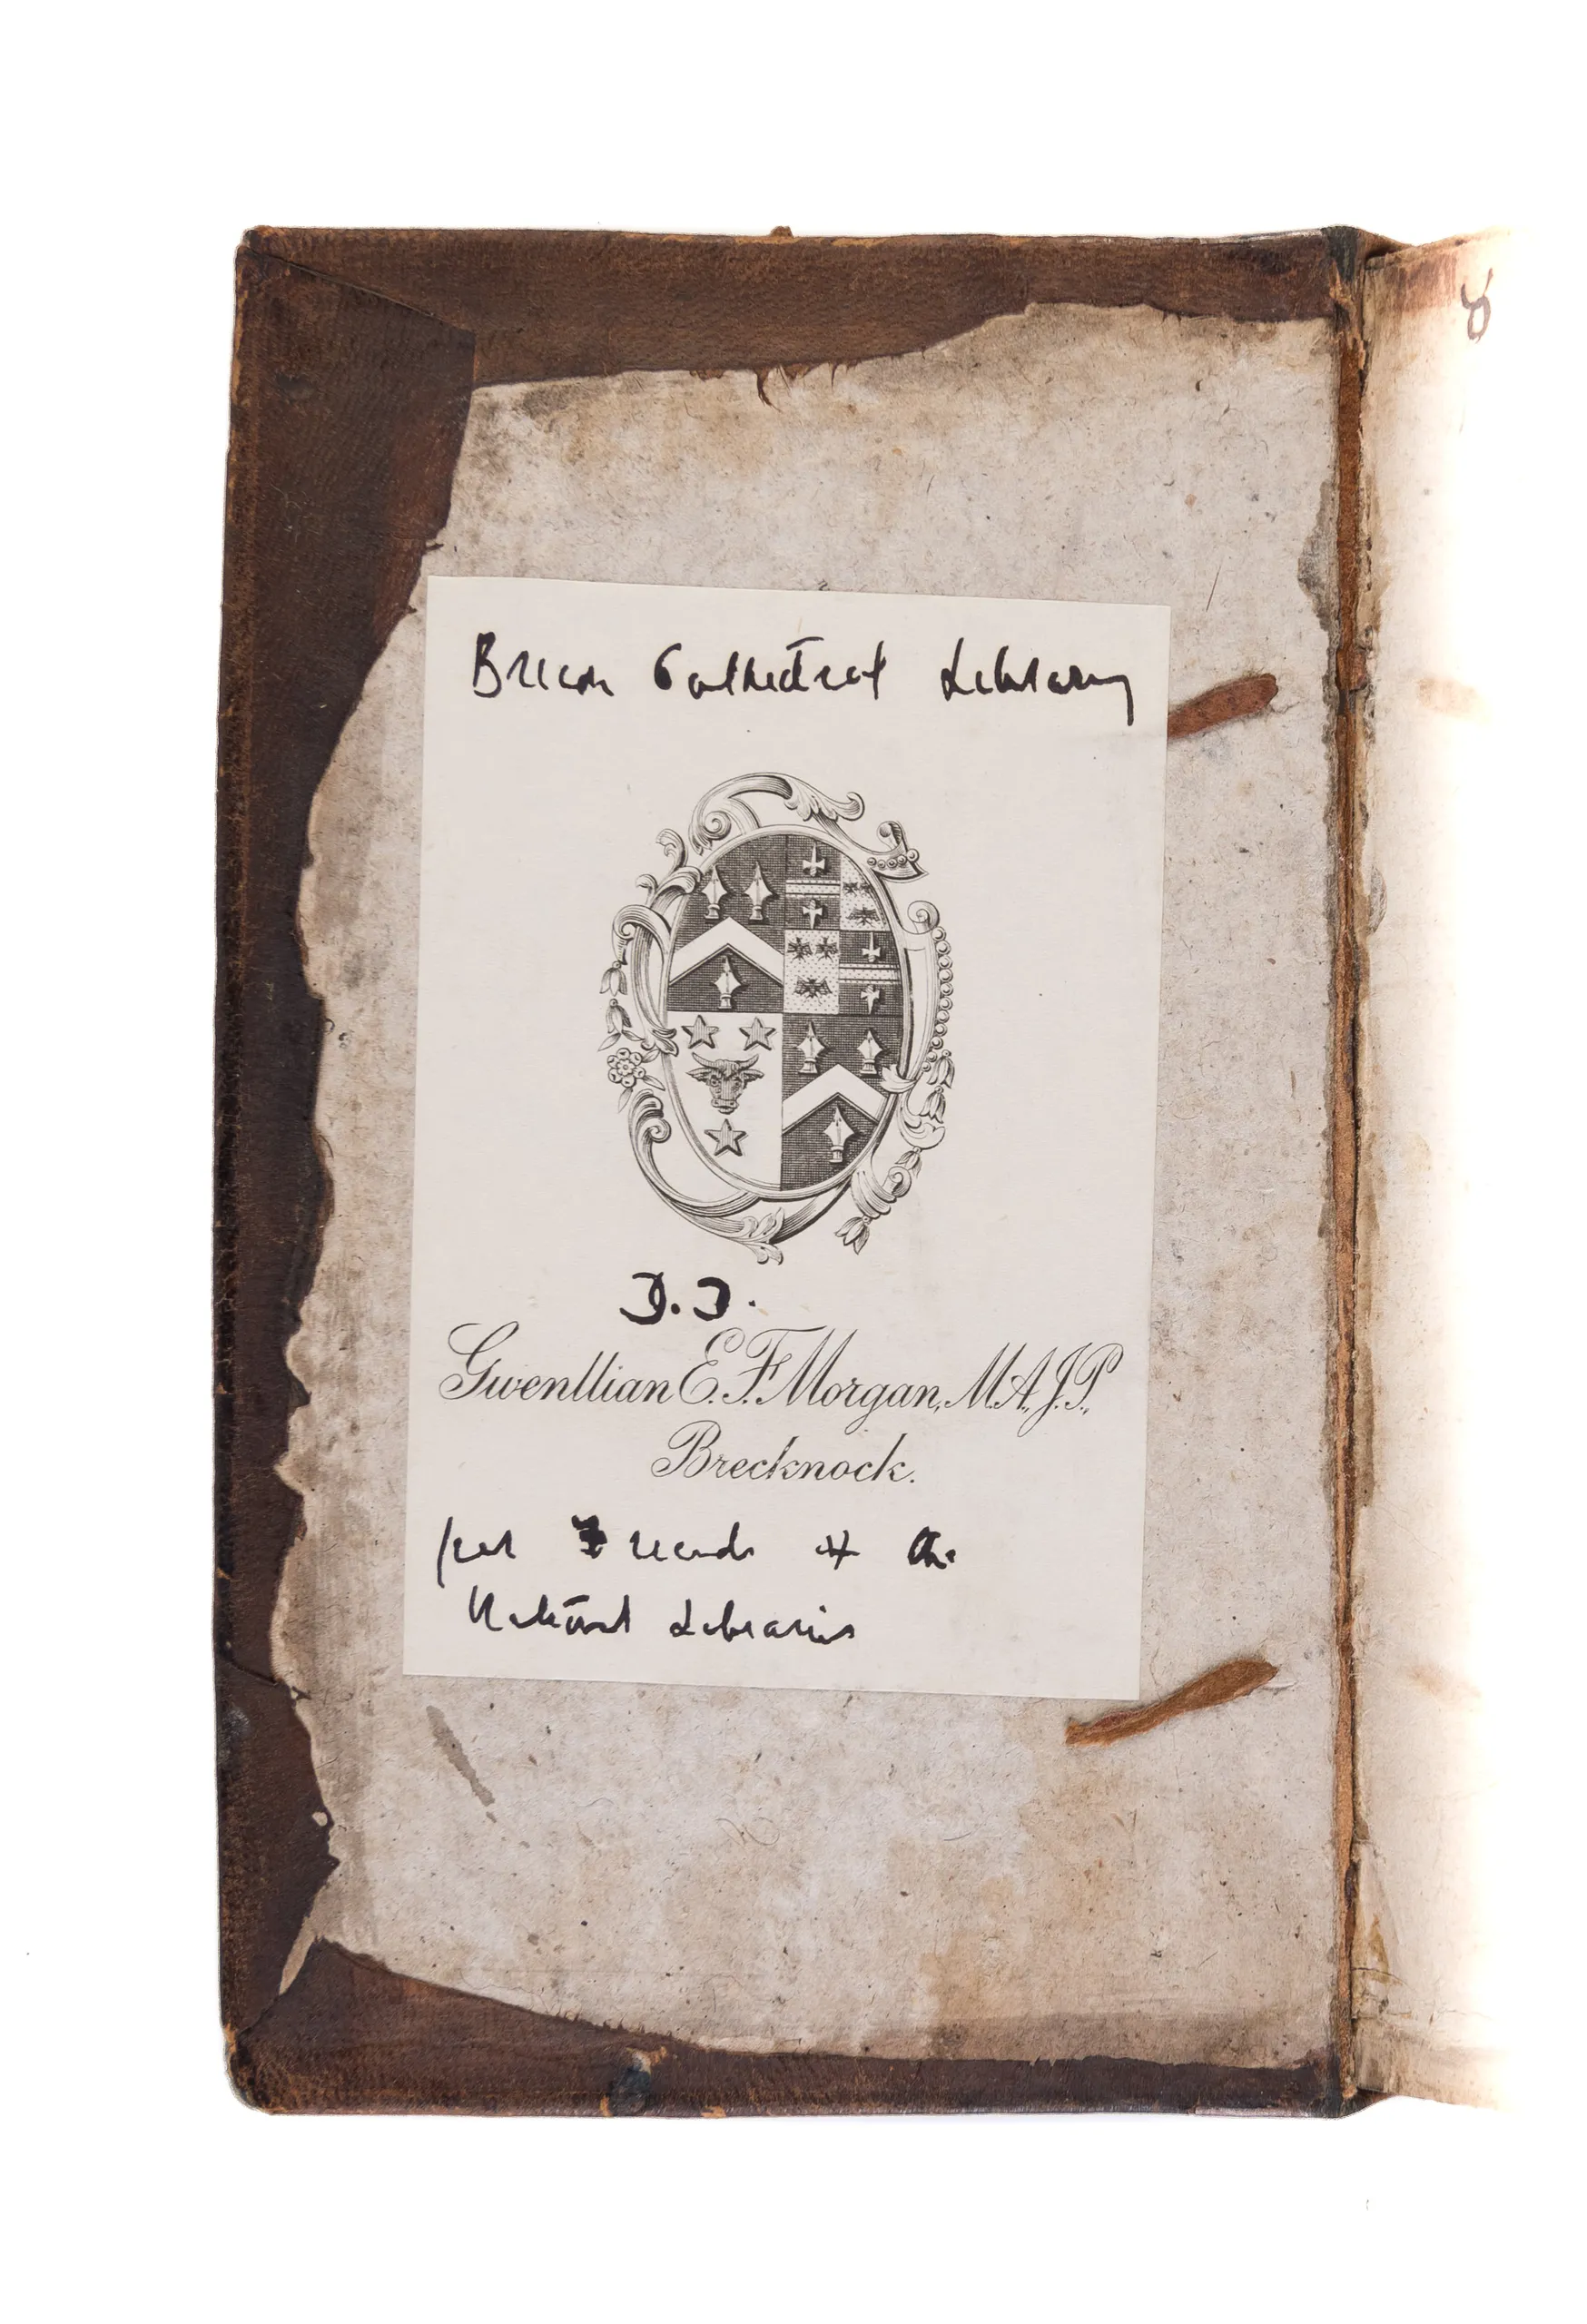 Brecon Cathedral Library
D.D.
Gwenllian E. F. Morgan, M.A., J.P.,
Brecknock.
per Friends of the
National Libraries
8